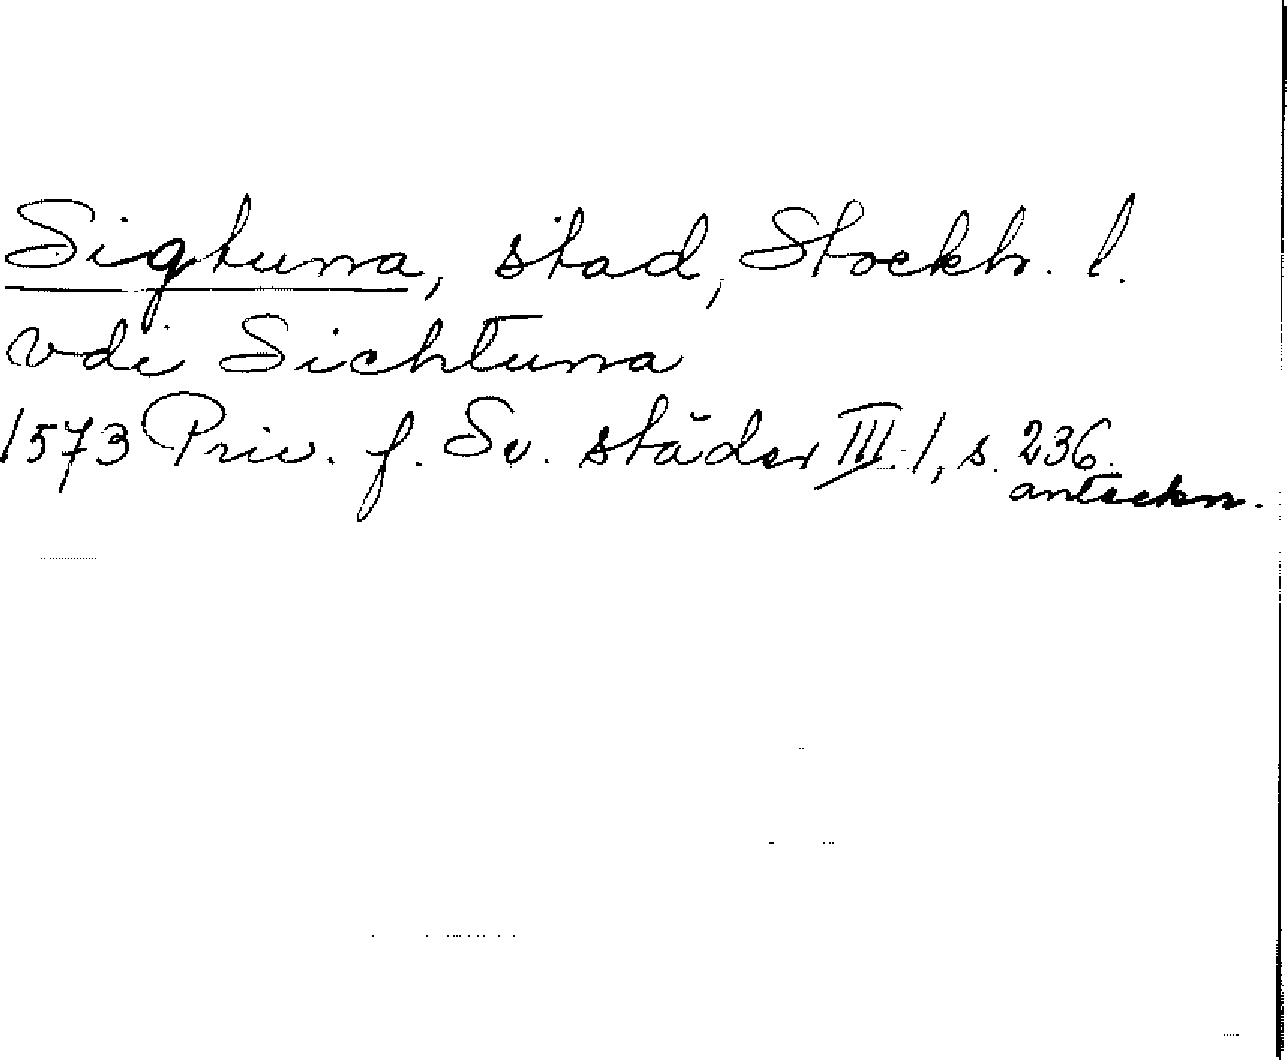 Sigtuna, stad, Stockh. l.
vdi Sichtuna
1573 Priv. f. Sv. städer III:1, s. 236.
anteckn.